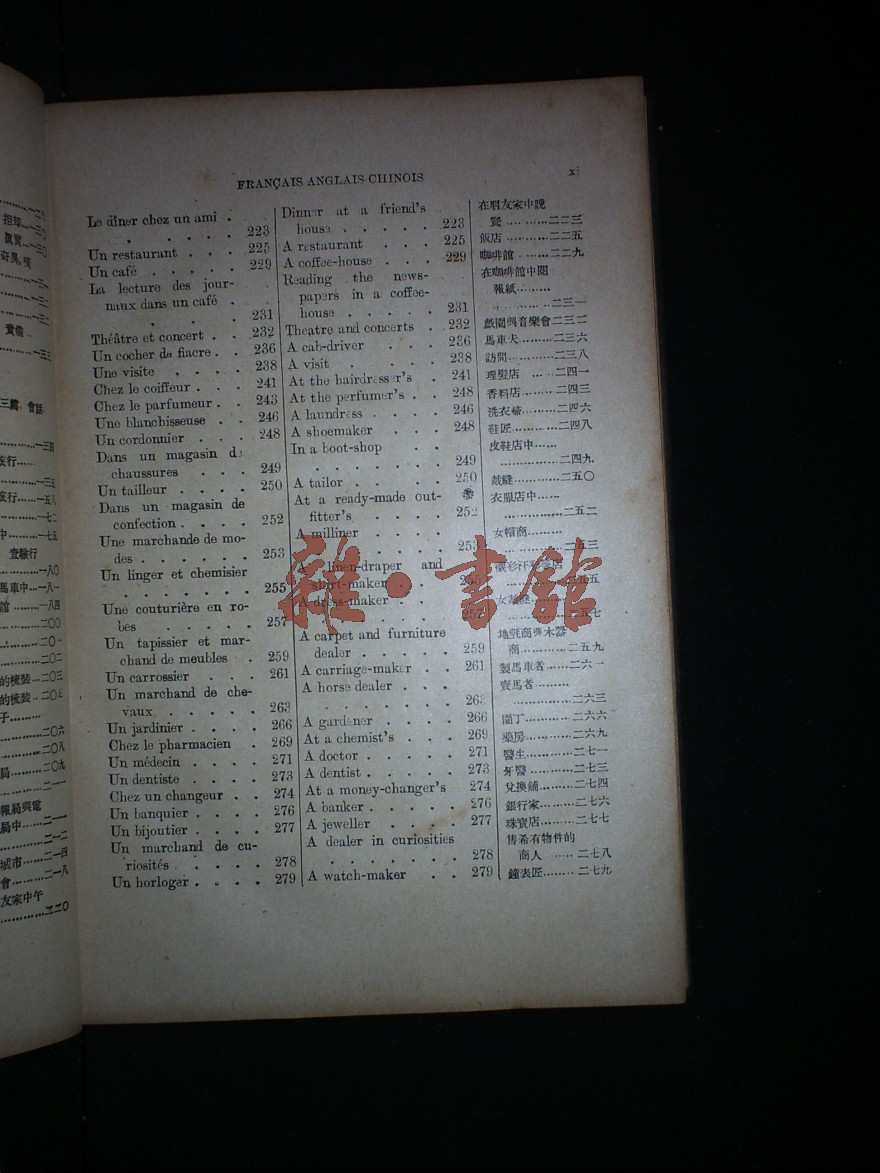 FRANÇAIS ANGLAIS CHINOIS
xi
Le dîner chez un ami .
. . . . . . 223
Un restaurant . . . 225
Un café . . . . . 229
La lecture des jour-
naux dans un café .
. . . . . . 231
Théâtre et concert . . 232
Un cocher de fiacre . . 236
Une visite . . . . 238
Chez le coiffeur . . . 241
Chez le parfumeur . . . 243
Une blanchisseuse . . 246
Un cordonnier . . . 248
Dans un magasin de
chaussures . . . 249
Un tailleur . . . . 250
Dans un magasin de
confection . . . . 252
Une marchande de mo-
des . . . . . . 253
Un linger et chemisier
. . . . . . 255
Une couturière en ro-
bes . . . . . 257
Un tapissier et mar-
chand de meubles . 259
Un carrossier . . . 261
Un marchand de che-
vaux . . . . . 263
Un jardinier . . . . 266
Chez le pharmacien . 269
Un médecin . . . . 271
Un dentiste . . . . 273
Chez un changeur . . 274
Un banquier . . . . 276
Un bijoutier . . . . 277
Un marchand de cu-
riosités . . . . . 278
Un horloger . . . . 279
Dinner at a friend's
house . . . . . 223
A restaurant . . . . 225
A coffee-house . . . 229
Reading the news-
papers in a coffee-
house . . . . . 231
Theatre and concerts . 232
A cab-driver . . . 236
A visit . . . . . 238
At the hairdresser's . 241
At the perfumer's . . 248
A laundress . . . . 246
A shoemaker . . . 248
In a boot-shop . .
. . . . . . . 249
A tailor . . . . . 250
At a ready-made out-
fitter's . . . . 252
A milliner . . . .
. . . . . . 253
A linen-draper and
shirt-maker . . . 255
A dress-maker . .
. . . . . . 257
A carpet and furniture
dealer . . . . . 259
A carriage-maker . . 261
A horse dealer . . .
. . . . . . . 263
A gardener . . . . 266
At a chemist's . . . 269
A doctor . . . . . 271
A dentist . . . . . 273
At a money-changer's 274
A banker . . . . . 276
A jeweller . . . . 277
A dealer in curiosities
. . . . . . . 278
A watch-maker . . 279
在朋友家中晚
餐…………二二三
飯店…………二二五
咖啡館………二二九
在咖啡館中閱
報紙………
…………二三一
戲園與音樂會二三二
馬車夫………二三六
訪問…………二三八
理髮店………二四一
香料店………二四三
洗衣婦………二四六
鞋匠…………二四八
皮鞋店中……
…………二四九
裁縫…………二五〇
衣服店中……
…………二五二
女帽商………
…………二五三
二五五
女裁縫………
…………二五七
地氈商與木器
商…………二五九
製馬車者……二六一
賣馬者………
…………二六三
園丁…………二六六
藥房…………二六九
醫生…………二七一
牙醫…………二七三
兌換舖………二七四
銀行家………二七六
珠寶店………二七七
售希有物件的
商人………二七八
鐘表匠………二七九
雜·書館